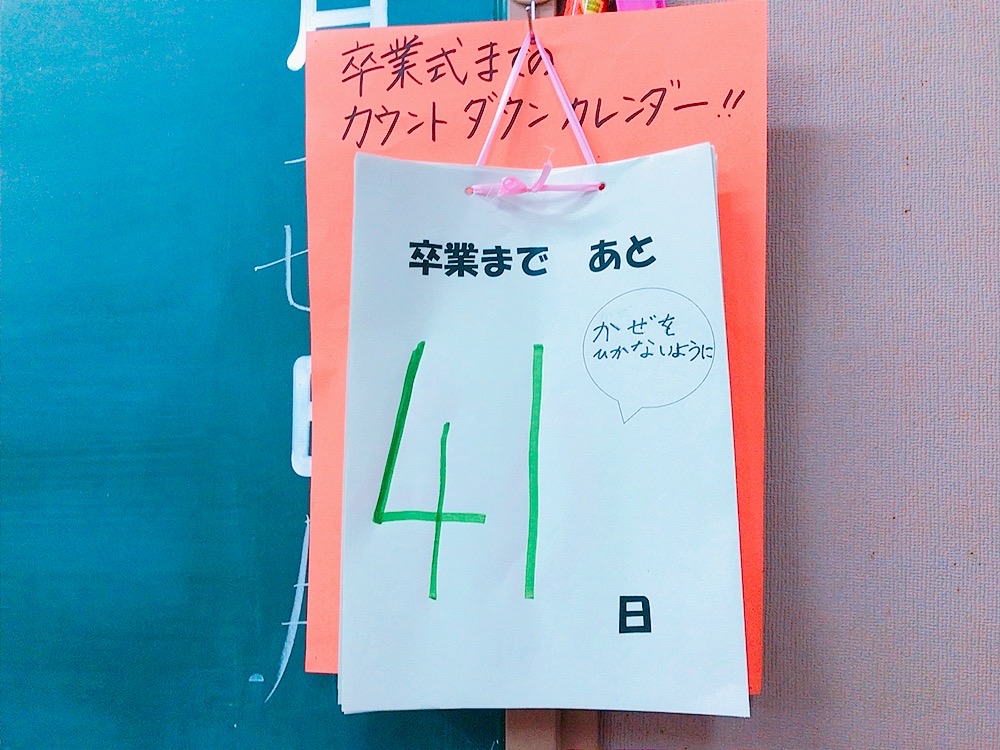 卒業式までの
カウントダウンカレンダー!!
卒業まで あと
かぜを
ひかないように
41
日